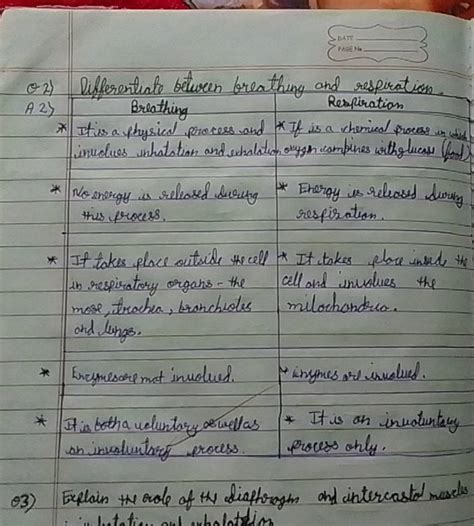 DATE
PAGE No.
Q 2) Differentiate between breathing and respiration.
A 2) Breathing Respiration
* It is a physical process and * It is a chemical process in which
involves inhalation and exhalation oxygen combines with glucose (food)
* No energy is released during * Energy is released during
this process. respiration.
* It takes place outside the cell * It takes place inside the
in respiratory organs - the cell and involves the
nose, trachea, bronchioles mitochondria.
and lungs.
* Enzymes are not involved. * enzymes are involved.
* It is both a voluntary as well as * It is an involuntary
an involuntary process. process only.
Q3) Explain the role of the diaphragm and intercostal muscles
in inhalation and exhalation